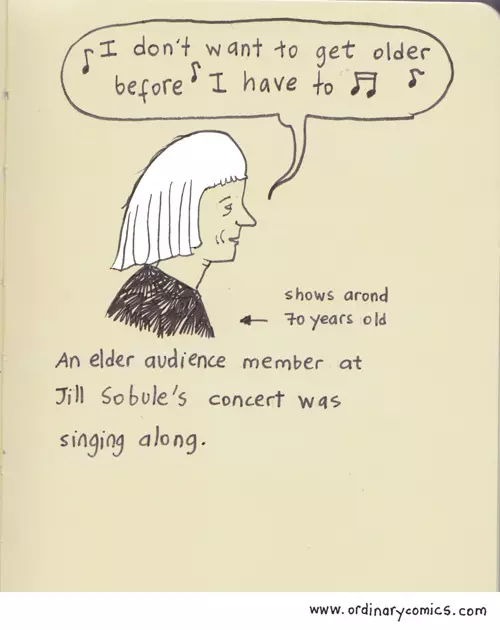 I don't want to get older
before I have to
shows arond
70 years old
An elder audience member at
Jill Sobule's concert was
singing along.
www.ordinarycomics.com